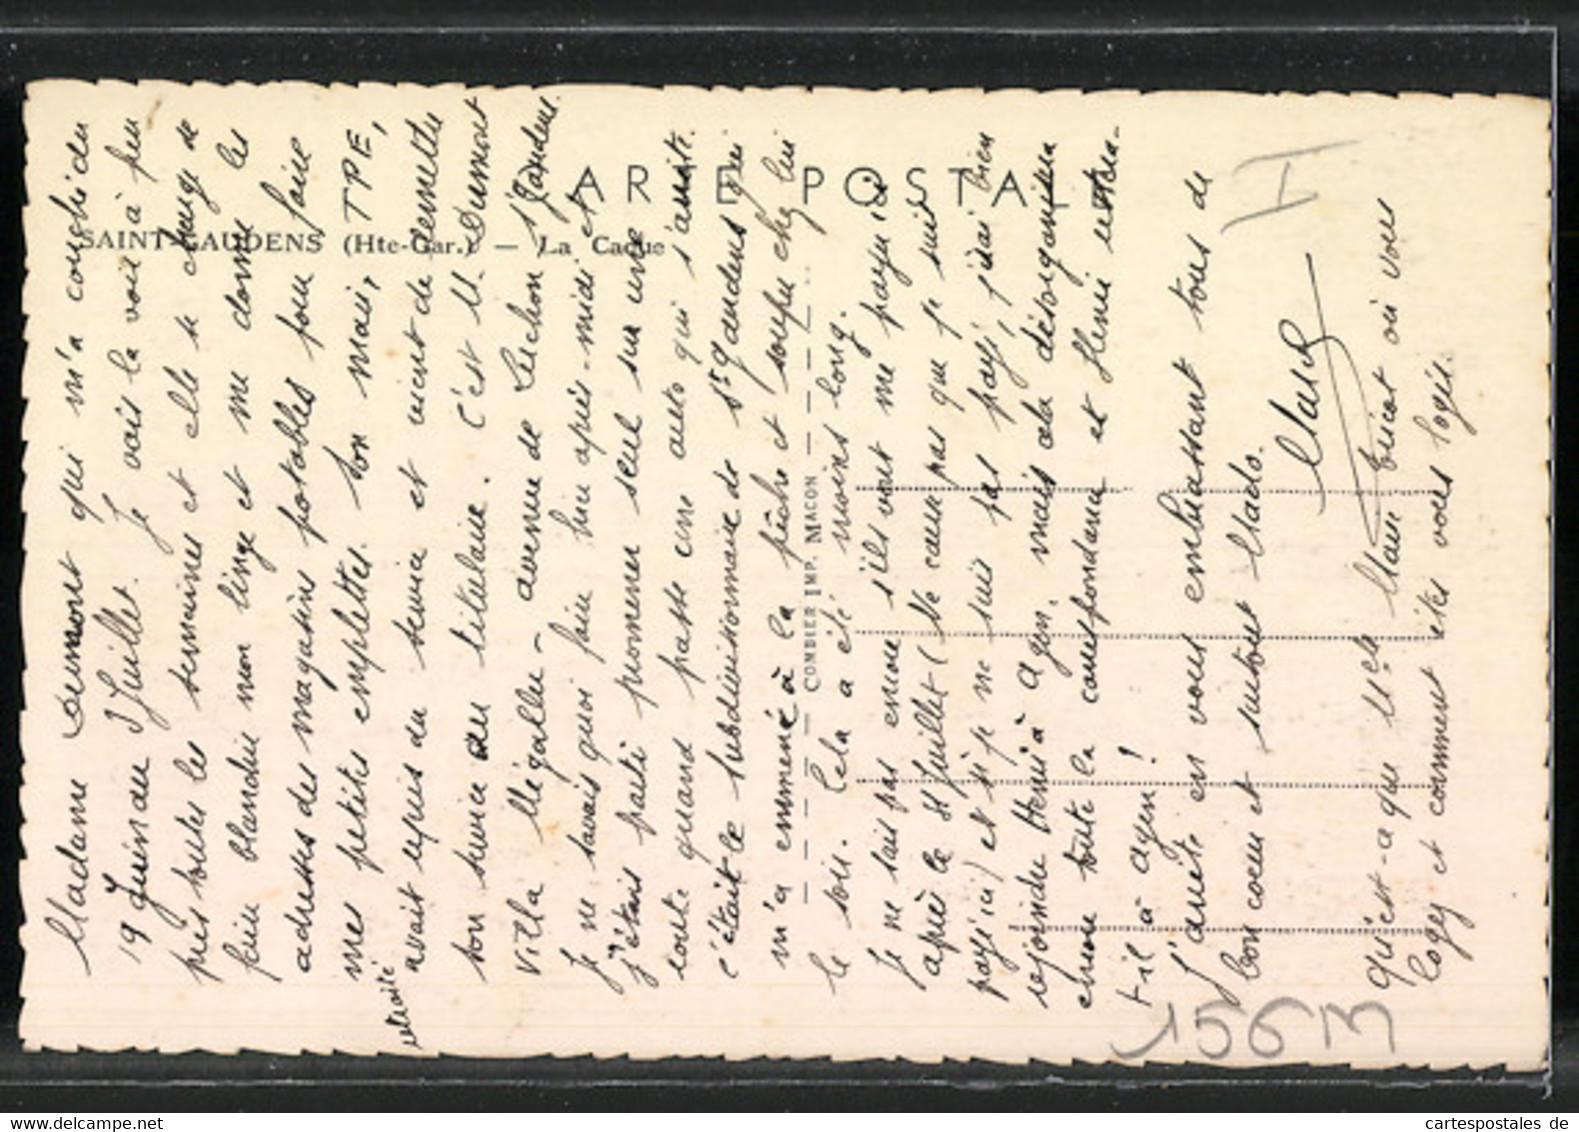 CARTE POSTALE
SAINT-GAUDENS (Hte-Gar.) — La Caque
COMBIER IMP. MACON
Madame Dumont qui m'a conduit du
19 Juin au 3 Juillet. Je vais la voir à peu
près toutes les semaines et elle se charge de
faire blanchir mon linge et me donne les
adresses des magasins potables pour faire
mes petites emplettes. Son mari, TPE,
retraité
avait repris du service et vient de remettre
son service au titulaire. C'est M. Dumont
Villa Mégallu - avenue de Luchon St Gaudens.
Je ne savais quoi faire hier après-midi et
j'étais parti promener seul sur une
route quand passe une auto qui s'arrête.
c'était le subdivisionnaire de St Gaudens qui
m'a emmené à la pêche et souper chez lui
le soir. Cela a été moins long.
Je ne sais pas encore s'ils vont me payer ici
après le 31 Juillet (Ne crois pas que je suis
payé ici) et si je ne suis pas payé, j'irai bien
rejoindre Henri à Agen. mais où la désorganisation
encore toute la correspondance et Henri
t-il à Agen!
J'arrête en vous embrassant tous de
bon coeur et surtout Mado.
Marcel
Qu'est-ce que Mlle Clair tricot où vous
logez et comment êtes vous logés.
156 M
II
cartespostales.de